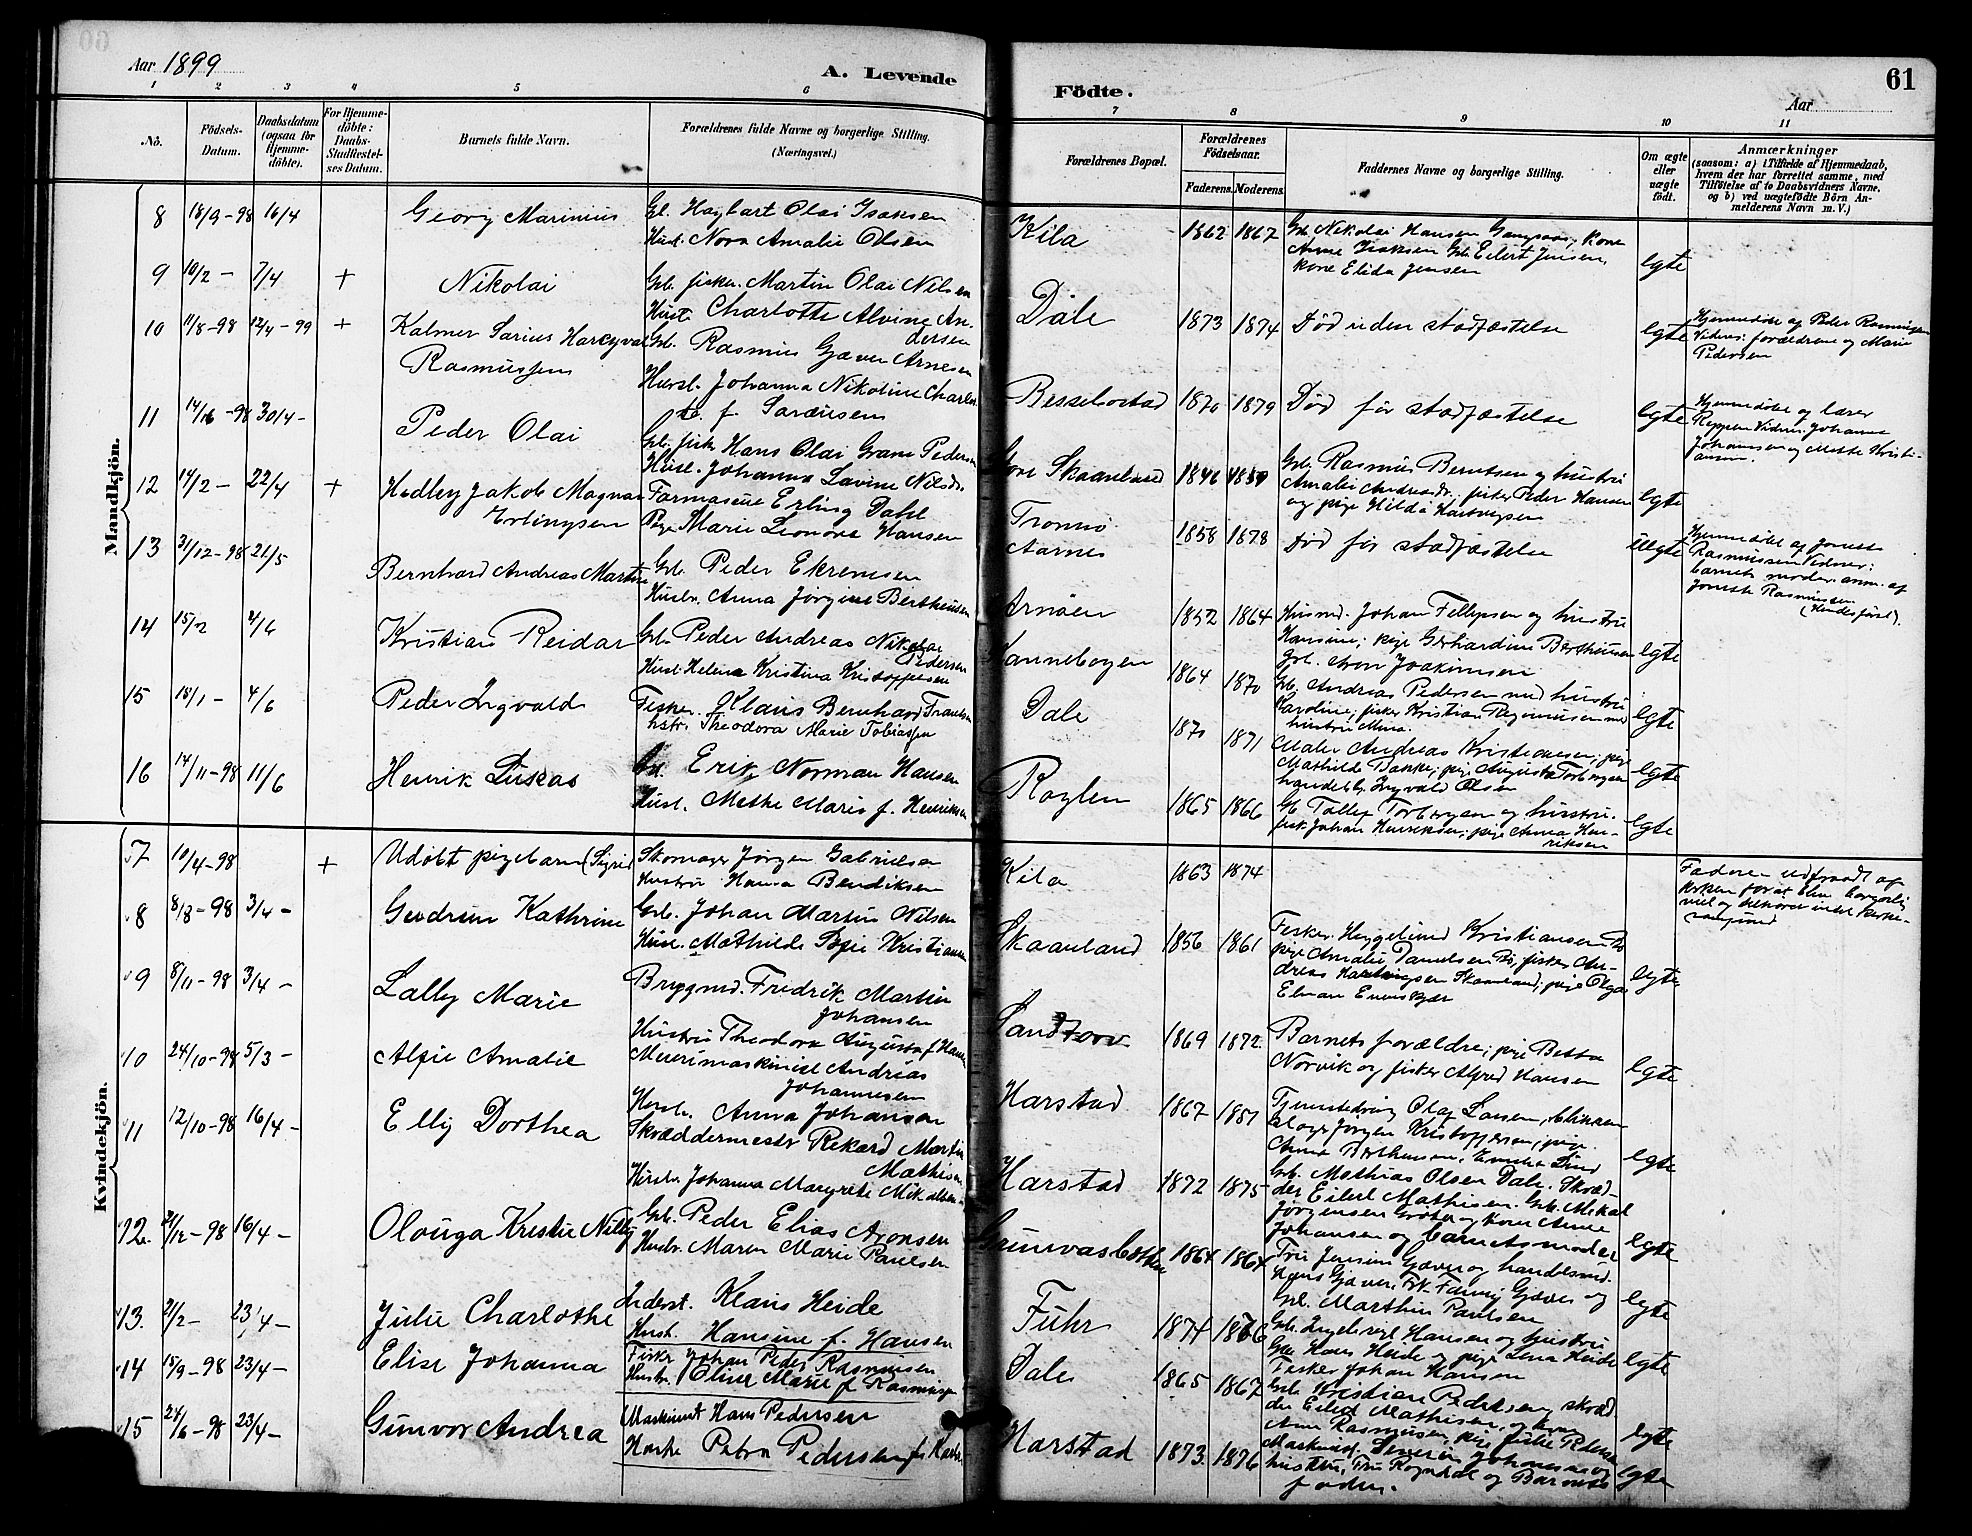 Aar 1899
A. Levende
Födte.
61
Aar
1 2 3 4 5 6 7 8 9 10 11
No.
Födsels-Datum.
Daabsdatum (ogsaa for Hjemme-döbte).
For Hjemme-döbte: Daabs-Stadfæstel-ses Datum.
Barnets fulde Navn.
Forældrenes fulde Navne og borgerlige Stilling.
(Næringsvei.)
Forældrenes Bopæl.
Forældrenes Födselsaar.
Faderens. Moderens.
Faddernes Navne og borgerlige Stilling.
Om ægte eller uægte födt.
Anmærkninger
(saasom: a) i Tilfælde af Hjemmedaab,
hvem der har forrettet samme, med
Tilföielse af to Daabsvidners Navne,
og b) ved uægtefödte Börn An-
melderens Navn m. V.)
Mandkjön.
8 18/9-98 16/4 Georg Marinius
Gl. Hagbart Olai Isaksen
Hust. Nora Amalie Olsen
Kila 1862 1867
Gb. Nikolai Hansen
Anne Isaksen Gb. Eilert Jensen,
kone Elida Jensen
egte
9 10/2 - 7/4 + Nikolai
Gb. fisker. Martin Olai Nilsen
Hust. Charlotte Alvine An-
dersen
Dale 1873 1874 Död uden stadfæstelse egte
Hjemmedöbt af Peder Rasmussen
Vidner: forældrene og Marie
Pedersen
10 11/8-98 12/4-99 + Kalmer Sarius
Rasmussen
Gb. Rasmus Gjæver Arnesen
Hust. Johanna Nikoline Charlot-
te f. Sarausen
Bessebostad 1870 1879 Död för stadfæstelse egte
Hjemmedöbt af lærer
Reppen Vidner: Johanne
Johannsen og Mette Kristi-
ansen
11 98 30/4- Peder Olai
Gb. fisker Hans Olai Grane Pedersen
Hust. Johanna Lavine Nilsd.
Skaanland 1846
Gb. Rasmus Berntsen og hustru
Amalie Andreasd.; fisker Peder Hansen
og pige Hilda Hartvigsen
egte
12 14/2 - 22/4 + Hedley Jakob Magnar
Erlingsen
Farmaseut Erling Dahl
Pige Marie Leonora Hansen
Tromsö
Aarnes
1858 1878 Död för stadfæstelse uegte
Hjemmedöbt af
Rasmussen Vidner:
barnets moder. anm. af
Rasmussen
13 31/12-98 21/5 Bernhard Andreas Martin
Gb. Peder Ekremsen
Hustr. Anna Jörgine Bertheusen
Arnöen 1852 1864
Husmd. Johan Fellepsen og hustru
Hansine; pige Gerhardine Bertheusen
Gb. Aron Joakimsen
egte
14 15/2 4/6 Kristian Reidar
Gb. Peder Andreas Nikolai
Pedersen
Hust. Helena Kristina Kristoffersen
Kannebogen 1864 1870
Gb. Andreas Pedersen med hustru
Karoline; fisker Kristian Rasmussen med
hustru Mina.
egte
15 18/1 - 4/6 Peder Ingvald
Fisker Klaus Bernhard Frantsen
hstr. Theodora Marie Tobiassen
Dale 1870 1871
Maler Andreas Kristiansen; pige
Mathilde Bakke; pige Augusta Torbergsen
handelsb. Ingvald Olsen
egte
16 14/11-98 11/6 Henrik Luskas
Erik Norman Hansen
Hust. Methe Marie f. Henriksen
Röglen 1865 1866
Gb. Tollef Torbergsen og hustru.
fisk. Johan Henriksen; pige Anna Hen-
riksen
egte
Kvindekjön.
7 10/4-98 + Udöbt pigebarn (Sigrid
Skomager Jörgen Gabrielsen
Hustru Hansa Bendiksen
Kila 1863 1874
Faderen udtraadt af
kirken
8 8/8-98 3/4- Gudrun Kathrine
Gb. Johan Martin Nilsen
Hust. Mathilde Sofie Kristiansen
Skaanland 1856 1861
Fisker Heggelund Kristiansen
pige Amalie Danielsen, fisker An-
dreas Hartvigsen Skaanland; pige Olga
Elman Evenskjær
egte
9 8/11-98 3/4- Lally Marie
Bryggmd. Fredrik Martin
Johansen
Hustru Theodora Augusta f. Hansen
Sandtorv 1869 1872
Barnets forældre; pige Betsa
Norvik og fisker Alfred Hansen
egte
10 24/10-98 5/3- Alfie Amalie
Murermaskinist Andreas
Johannesen
Hust. Anna Johansen
Harstad 1867 1851
Tjenestedreng Olaf Larsen, blikken-
slager Jörgen Kristoffersen, pige
Anna Berthensen, Emelia Lind
egte
11 12/10-98 16/4- Elly Dorthea
Skræddermester Rekard Martin
Mathisen
Hust. Johanna Margrete Mikalsen
Harstad 1872 1875
Gb. Mathias Olsen Dale. Skræd-
der Eilert Mathisen. Gb. Mikal
Jörgensen Gröta og kone Anne
Johansen og barnets moder
egte
12. 98 16/4- Olouga Kristie Nelly
Gb. Peder Elias Aronsen
Hustr. Maren Marie Paulsen
Grunvasbotten 1864 1864
Fru Jensine Gjæver og handelsmd.
Hans Gjæver, Frk. Fanny Gjæver og
Gb. Marthin Paulsen
egte
13. 21/2- 23/4- Julie Charlothe
Inderst. Klaus Heide
Hust. Hansine f. Hansen
Fuhr 1874 1876
Gb. Ingebrigt Hansen og hustru
Gb. Hans Heide og pige Lena Heide
Fisker Johan Hansen
egte
14 15/9-98 23/4- Elise Johanna
Fisker Johan Peder Rasmussen
Hustr. Oline Marie f. Rasmussen
Dale 1865 1867
Gb. Kristian Pedersen, skræd-
der Eilert Mathisen, og kone
Anne Rasmussen, pige Julie Pedersen
egte
15 24/6-98 23/4- Gunvor Andrea
Maskinist Hans Pedersen
Hustr. Petra Pedersen f.
Harstad 1873 1876
Maskinist Severin Johansen og
hustru, Fru Rognhal og Barnets
fader.
egte